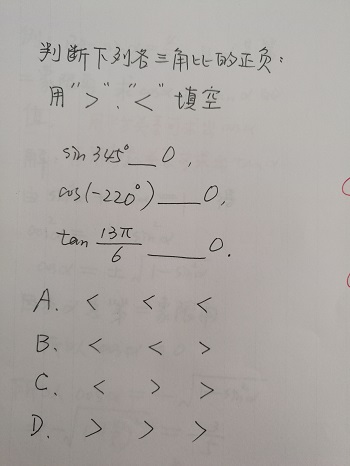 判断下列各三角比的正负:
用">"、"<"填空
sin 345°___0,
cos(-220°)___0,
tan 13π/6 ___0.
A. < < <
B. < < >
C. < > >
D. > > >